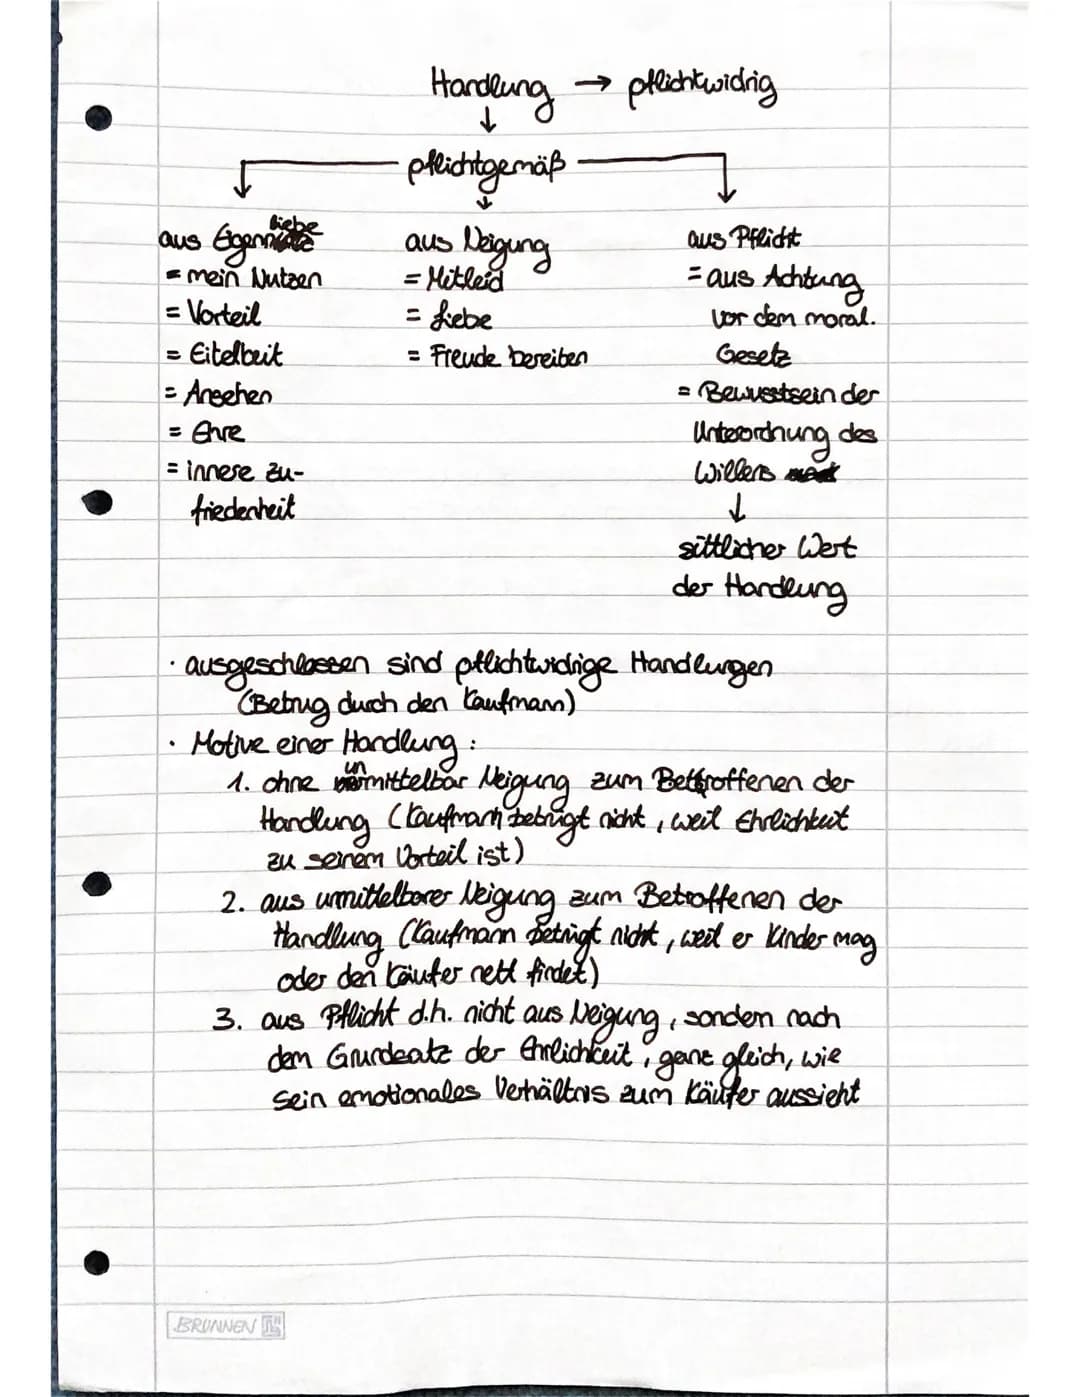 Handlung → pflichtwidrig
↓
pflichtgemäß
↓
aus Eigenliebe
= mein Nutzen
= Vorteil
= Eitelkeit
= Ansehen
= Ehre
= innere Zu-
friedenheit
aus Neigung
= Mitleid
= Liebe
= Freude bereiten
aus Pflicht
= aus Achtung
vor dem moral.
Gesetz
= Bewusstsein der
Unterordnung des
Willens
↓
sittlicher Wert
der Handlung
· ausgeschlossen sind pflichtwidrige Handlungen
(Betrug durch den Kaufmann)
· Motive einer Handlung :
1. ohne unmittelbar Neigung zum Betroffenen der
Handlung (Kaufmann betrügt nicht, weil Ehrlichkeit
zu seinem Vorteil ist)
2. aus unmittelbarer Neigung zum Betroffenen der
Handlung (Kaufmann betrügt nicht, weil er Kinder mag
oder den Käufer nett findet)
3. aus Pflicht d.h. nicht aus Neigung, sondern nach
dem Grundsatz der Ehrlichkeit, ganz gleich, wie
sein emotionales Verhältnis zum Käufer aussieht
BRUNNEN